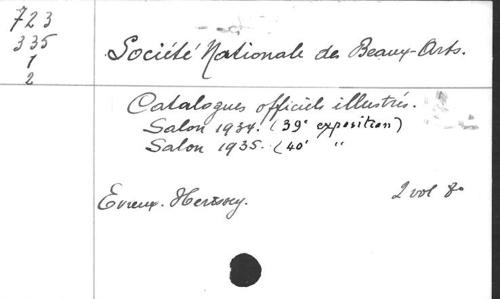 723
335
1
2
Société Nationale des Beaux-Arts.
Catalogues officiels illustrés.
Salon 1934. (39e exposition)
Salon 1935. (40e "
Evreux. Herissey. 2 vol 8o